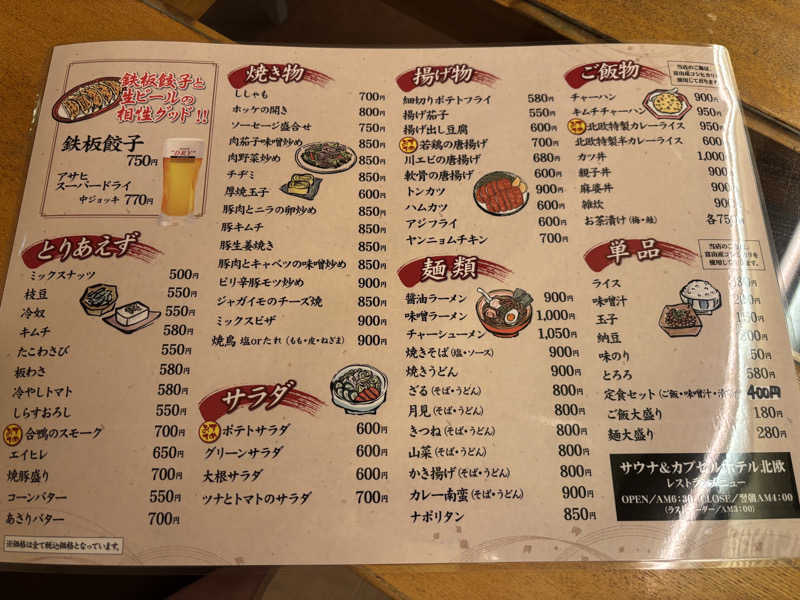 鉄板餃子と
生ビールの
相性グッド!!
鉄板餃子
750円
アサヒ
スーパードライ
中ジョッキ 770円
とりあえず
ミックスナッツ 500円
枝豆 550円
冷奴 550円
キムチ 580円
たこわさび 550円
板わさ 580円
冷やしトマト 580円
しらすおろし 550円
合鴨のスモーク 700円
エイヒレ 650円
焼豚盛り 700円
コーンバター 550円
あさりバター 700円
※価格は全て税込価格となっています。
焼き物
ししゃも 700円
ホッケの開き 800円
ソーセージ盛合せ 750円
肉茄子味噌炒め 850円
肉野菜炒め 850円
チヂミ 850円
厚焼玉子 600円
豚肉とニラの卵炒め 850円
豚キムチ 850円
豚生姜焼き 850円
豚肉とキャベツの味噌炒め 850円
ピリ辛豚モツ炒め 900円
ジャガイモのチーズ焼 850円
ミックスピザ 900円
焼鳥 塩orたれ(もも・皮・ねぎま) 900円
サラダ
ポテトサラダ 600円
グリーンサラダ 600円
大根サラダ 600円
ツナとトマトのサラダ 700円
揚げ物
細切りポテトフライ 580円
揚げ茄子 550円
揚げ出し豆腐 600円
若鶏の唐揚げ 700円
川エビの唐揚げ 680円
軟骨の唐揚げ 700円
トンカツ 900円
ハムカツ 600円
アジフライ 600円
ヤンニョムチキン 700円
麺類
醤油ラーメン 900円
味噌ラーメン 1,000円
チャーシューメン 1,050円
焼きそば(塩・ソース) 900円
焼きうどん 900円
ざる(そば・うどん) 800円
月見(そば・うどん) 800円
きつね(そば・うどん) 800円
山菜(そば・うどん) 800円
かき揚げ(そば・うどん) 800円
カレー南蛮(そば・うどん) 900円
ナポリタン 850円
ご飯物
当店のご飯は、
富山産コシヒカリを
使用しております。
チャーハン 900円
キムチチャーハン 950円
北欧特製カレーライス 950円
北欧特製半カレーライス 600円
カツ丼 1,000
親子丼 900
麻婆丼 900
雑炊 900
お茶漬け(梅・鮭) 各750
単品
ライス
味噌汁
玉子
納豆
味のり
とろろ 580円
定食セット(ご飯・味噌汁・ 400円
ご飯大盛り 180円
麺大盛り 280円
サウナ&カプセルホテル北欧
レストランメニュー
OPEN/AM6:30 CLOSE/翌朝AM4:00
(ラストオーダー/AM3:00)